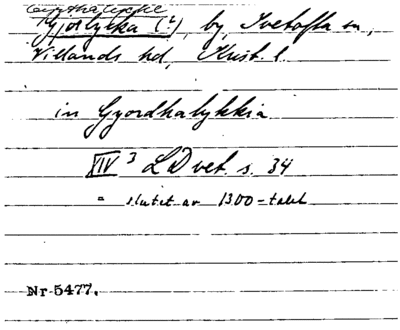 Gjorlycka (?), by, Ivetofta sn,
Villands hd, Krist. l.
in Gyordhalykkia
XIV 3 LD vet. s. 34
" slutet av 1300-talet
Nr 5477.